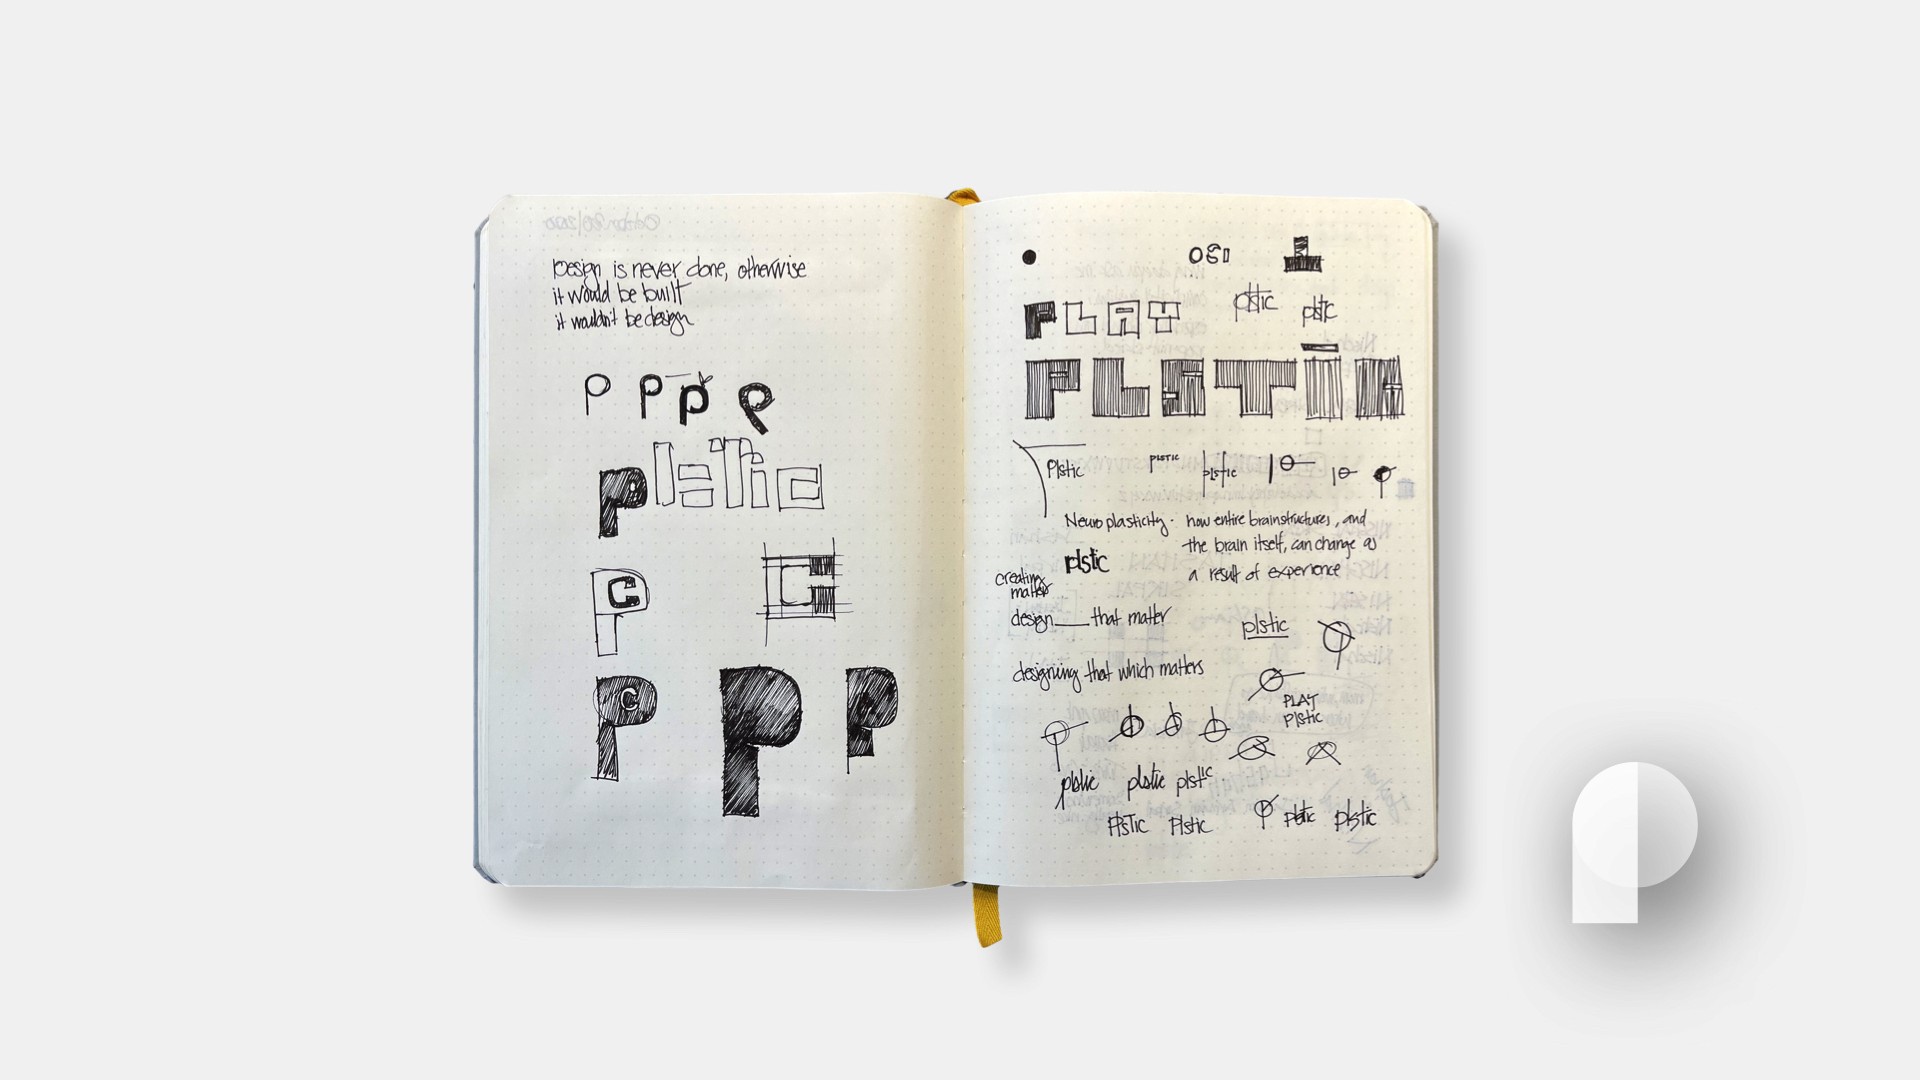 Design is never done, otherwise
it would be built
it wouldn't be design
P P P P
Plstic
C
C
C
P P
PLAY
plstic
plstic
PLSTIC
Plstic
PLSTIC
plstic
Neuroplasticity - how entire brainstructures, and
the brain itself, can change as
a result of experience
plstic
creating
matter
design ___ that matter
plstic
designing that which matters
PLAY
plstic
plstic plstic plstic
PlSTIC Plstic plstic plstic